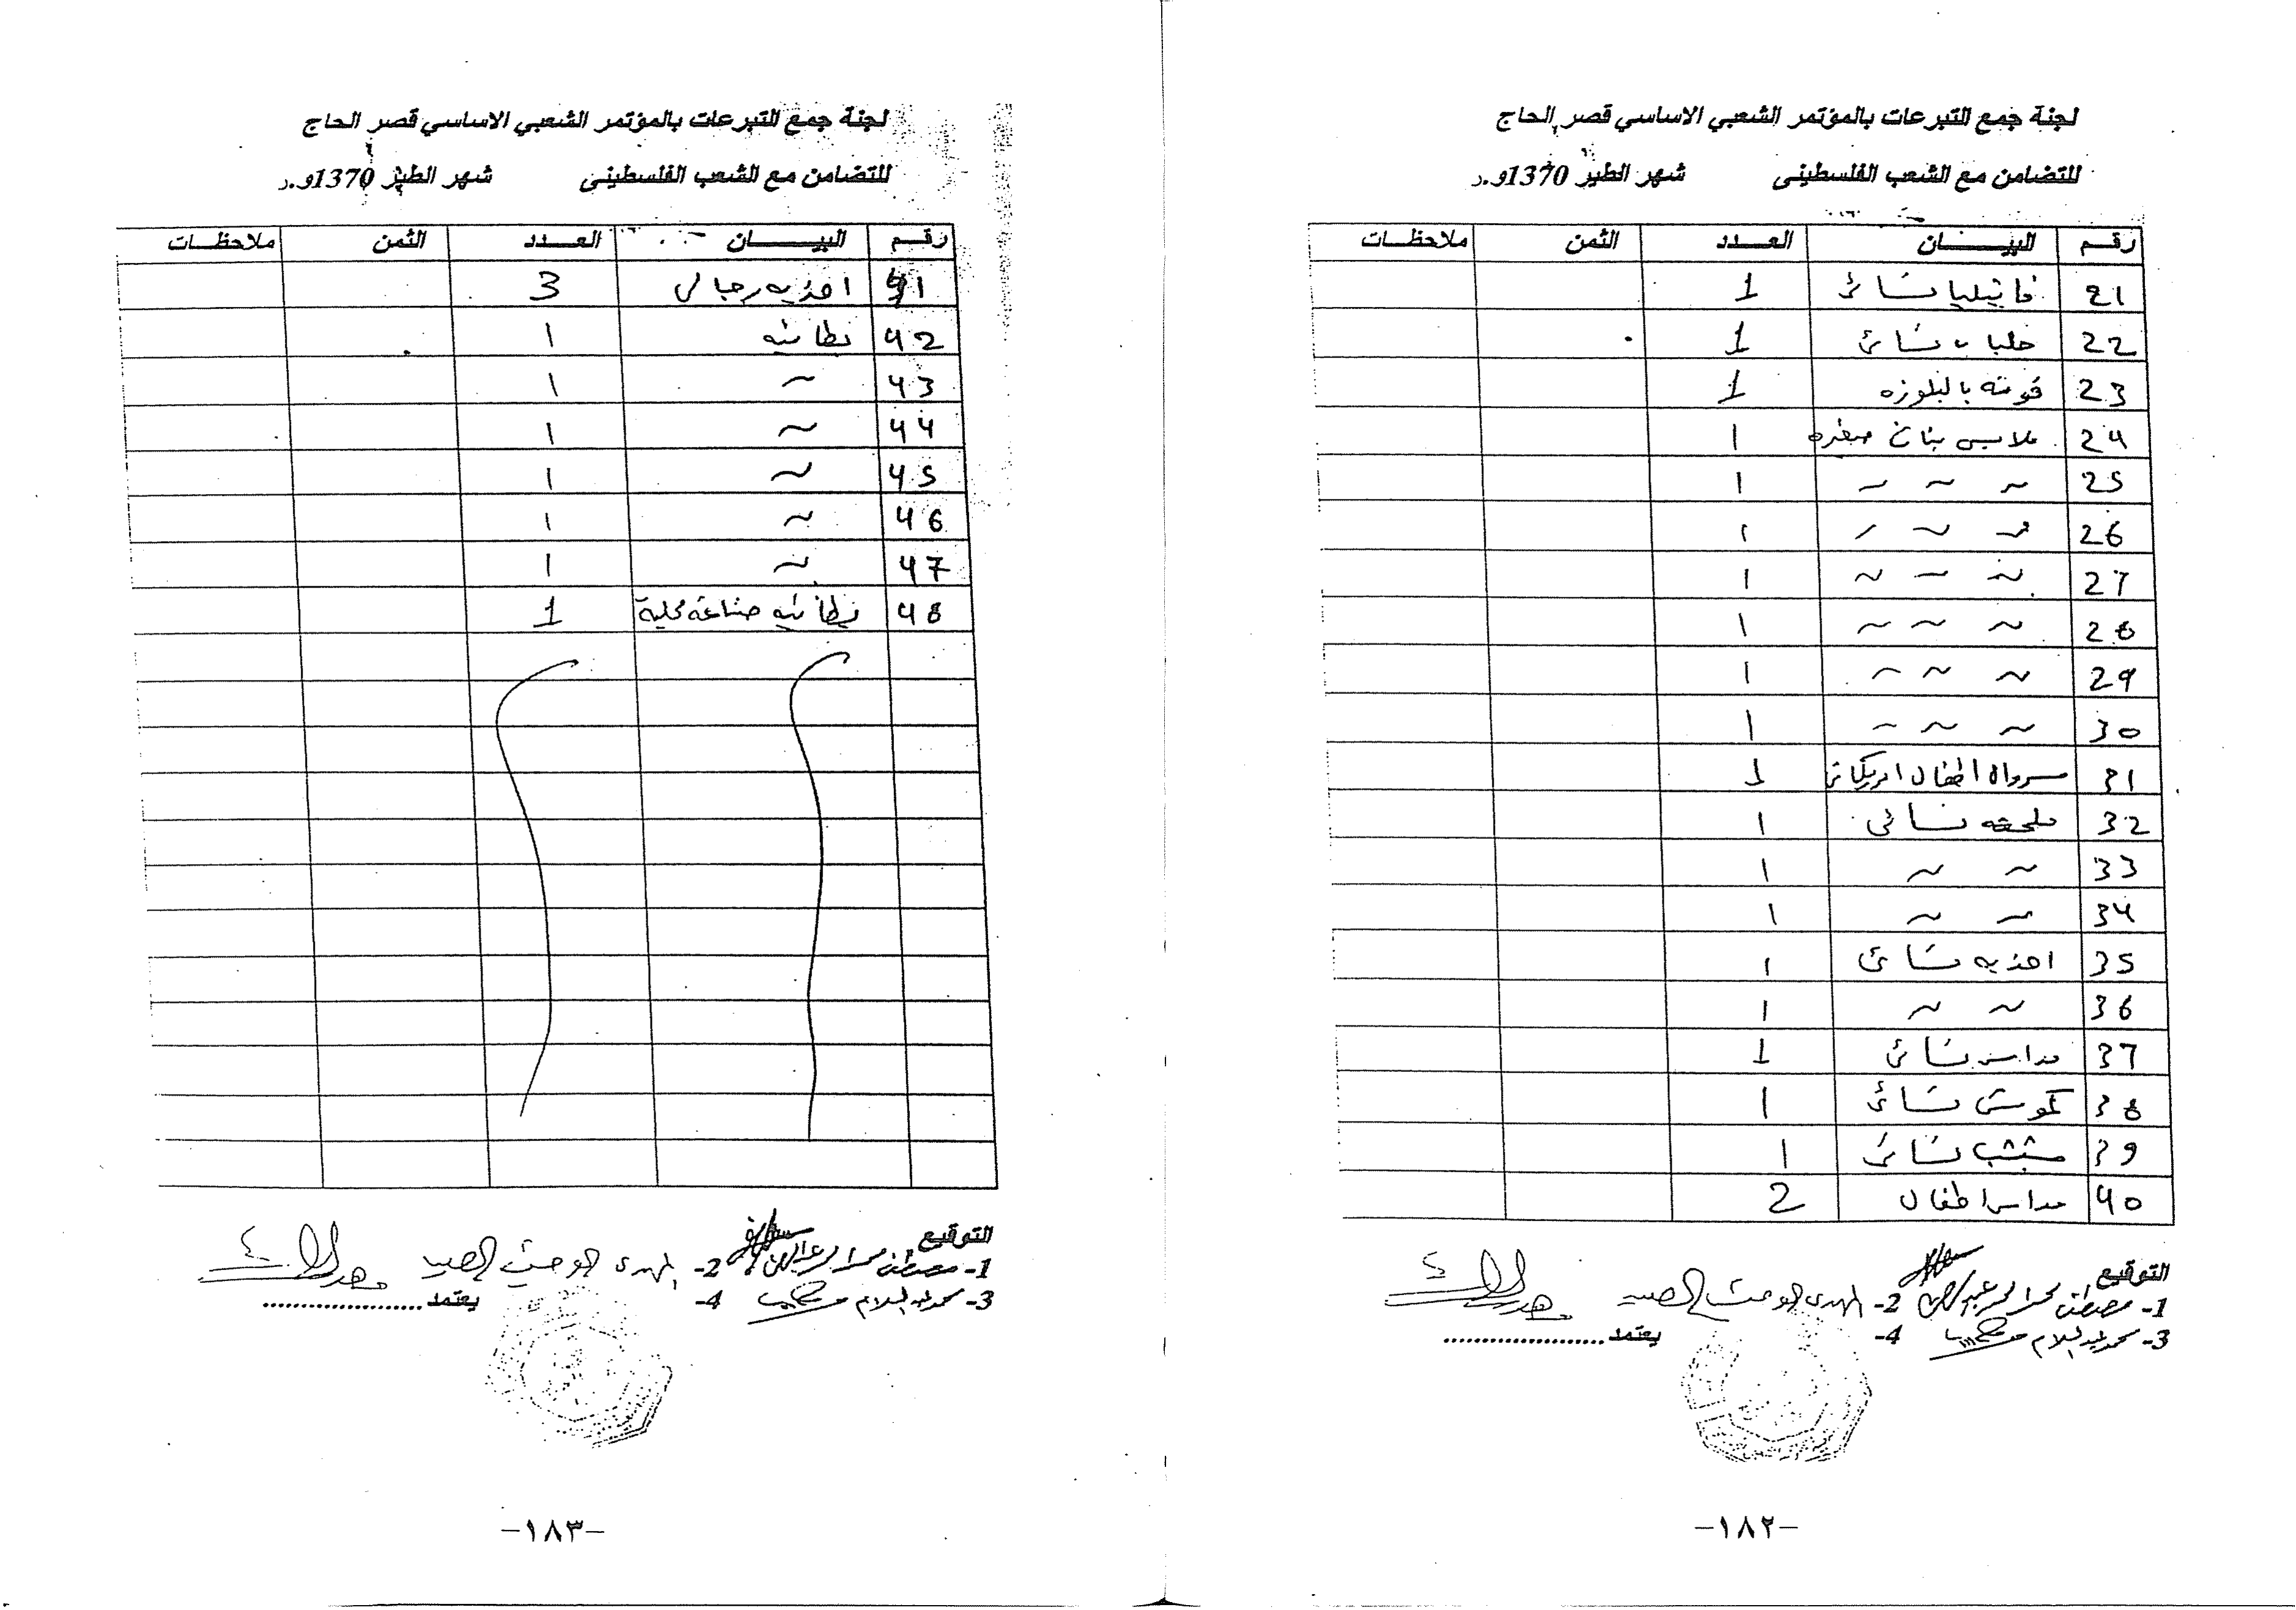 لجنة جمع التبرعات بالمؤتمر الشعبي الاساسي قصر الحاج
للتضامن مع الشعب الفلسطينى شهر الطير 1370و.ر
رقم البيان العدد الثمن ملاحظات
21 نسائى 1
22 جلباب نسائى 1
23 بالبلوزه 1
24 ملابس بنات صغيره 1
25 ~ ~ ~ 1
26 ~ ~ ~ 1
27 ~ ~ ~ 1
28 ~ ~ ~ 1
29 ~ ~ ~ 1
30 ~ ~ ~ 1
31 سروال اطفال امريكانى 1
32 ملحفه نسائى 1
33 ~ ~ 1
34 ~ ~ 1
35 احذيه نسائى 1
36 ~ ~ 1
37 مداس نسائى 1
38 نسائى 1
39 شبشب نسائى 1
40 مداس اطفال 2
التوقيع
1- مصطفى 2- المهدى
3- محمد عبدالسلام 4- يعتمد .....................
-١٨٢-
لجنة جمع التبرعات بالمؤتمر الشعبي الاساسي قصر الحاج
للتضامن مع الشعب الفلسطينى شهر الطير 1370و.ر
رقم البيان العدد الثمن ملاحظات
41 احذيه رجالى 3
42 بطانيه 1
43 ~ 1
44 ~ 1
45 ~ 1
46 ~ 1
47 ~ 1
48 بطانيه صناعة محلية 1
التوقيع
1- مصطفى 2- المهدى
3- محمد عبدالسلام 4- يعتمد .....................
-١٨٣-